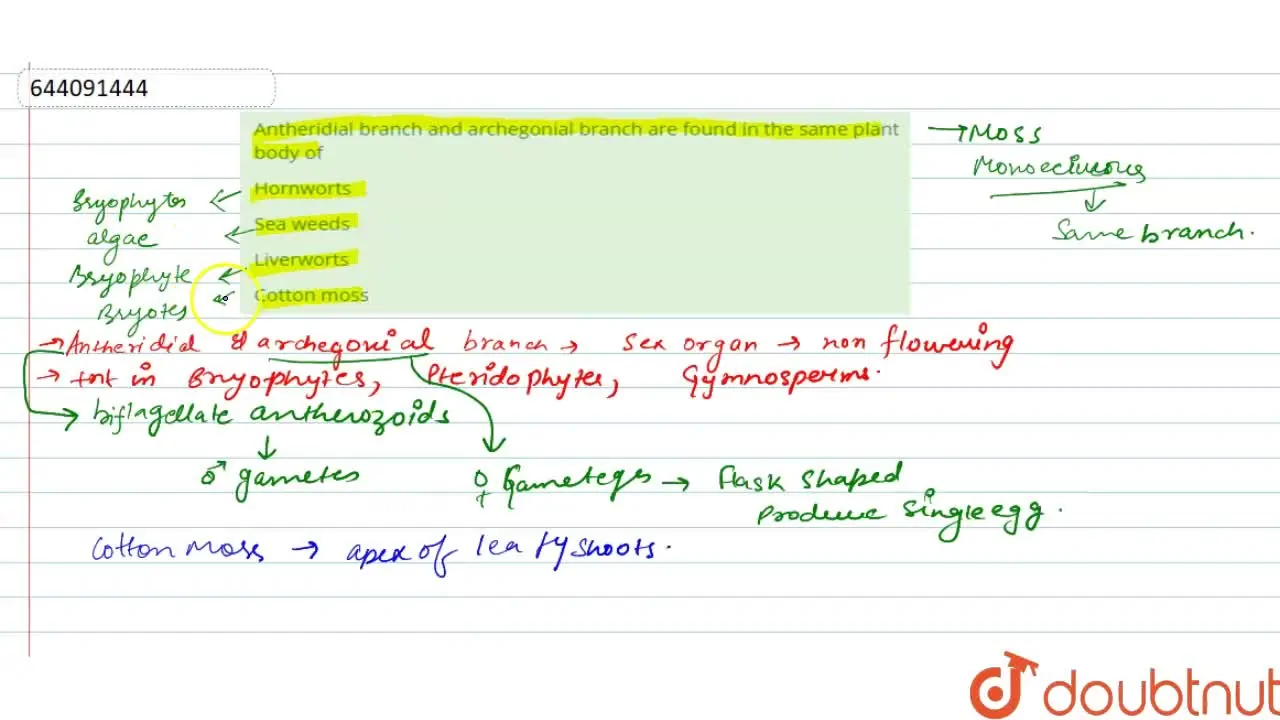 644091444
Antheridial branch and archegonial branch are found in the same plant
body of
Hornworts
Sea weeds
Liverworts
Cotton moss
→ Moss
Monoecieuous
↓
Same branch.
Bryophytes ←
algae ←
Bryophyte ←
Bryotes ←
→ Antheridial & archegonial branch → Sex organ → non flowering
→ Int in Bryophytes, Pteridophytes, Gymnosperms.
→ biflagellate antherozoids
↓
♂ gametes
♀ Gameteges → flask shaped
Produce single egg.
Cotton Moss → apex of leafy shoots.
doubtnut